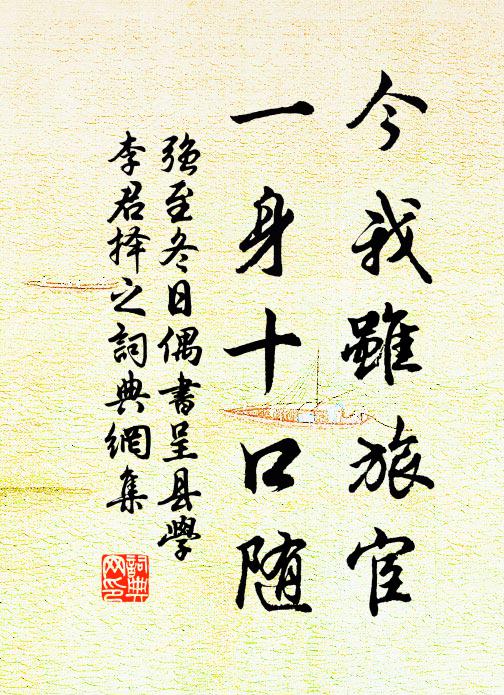 今我雖旅宦
一身十口随
强至冬日偶書呈县學
李君择之詞典網集
詞典
网印